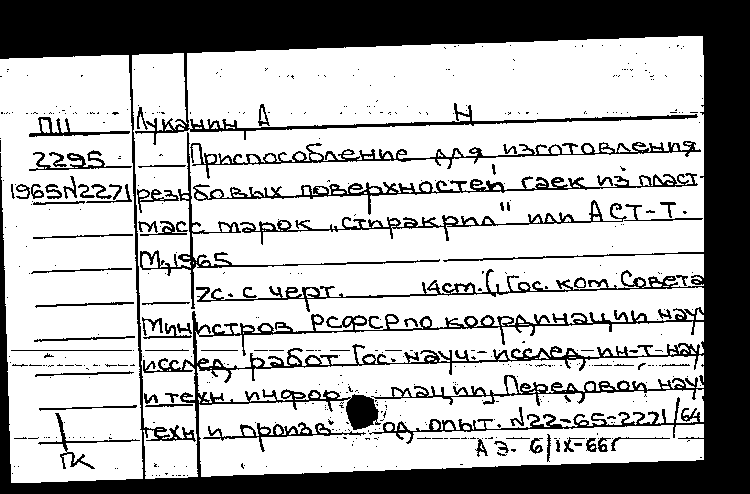 П11 Луканин, А Н
2295 Приспособление для изготовления
1965N2271 резьбовых поверхностей гаек из пласт-
масс марок „стиракрил" или АСТ-Т.
М., 1965
7с. с черт. 14см. (Гос. ком. Совета
Министров РСФСР по координации науч
исслед. работ Гос. науч.-исслед. ин-т науч
и техн. информации, Передовой науч
техн и произв. од. опыт. N22-65-2271/64
АЭ. 6/IX-66г
ПК